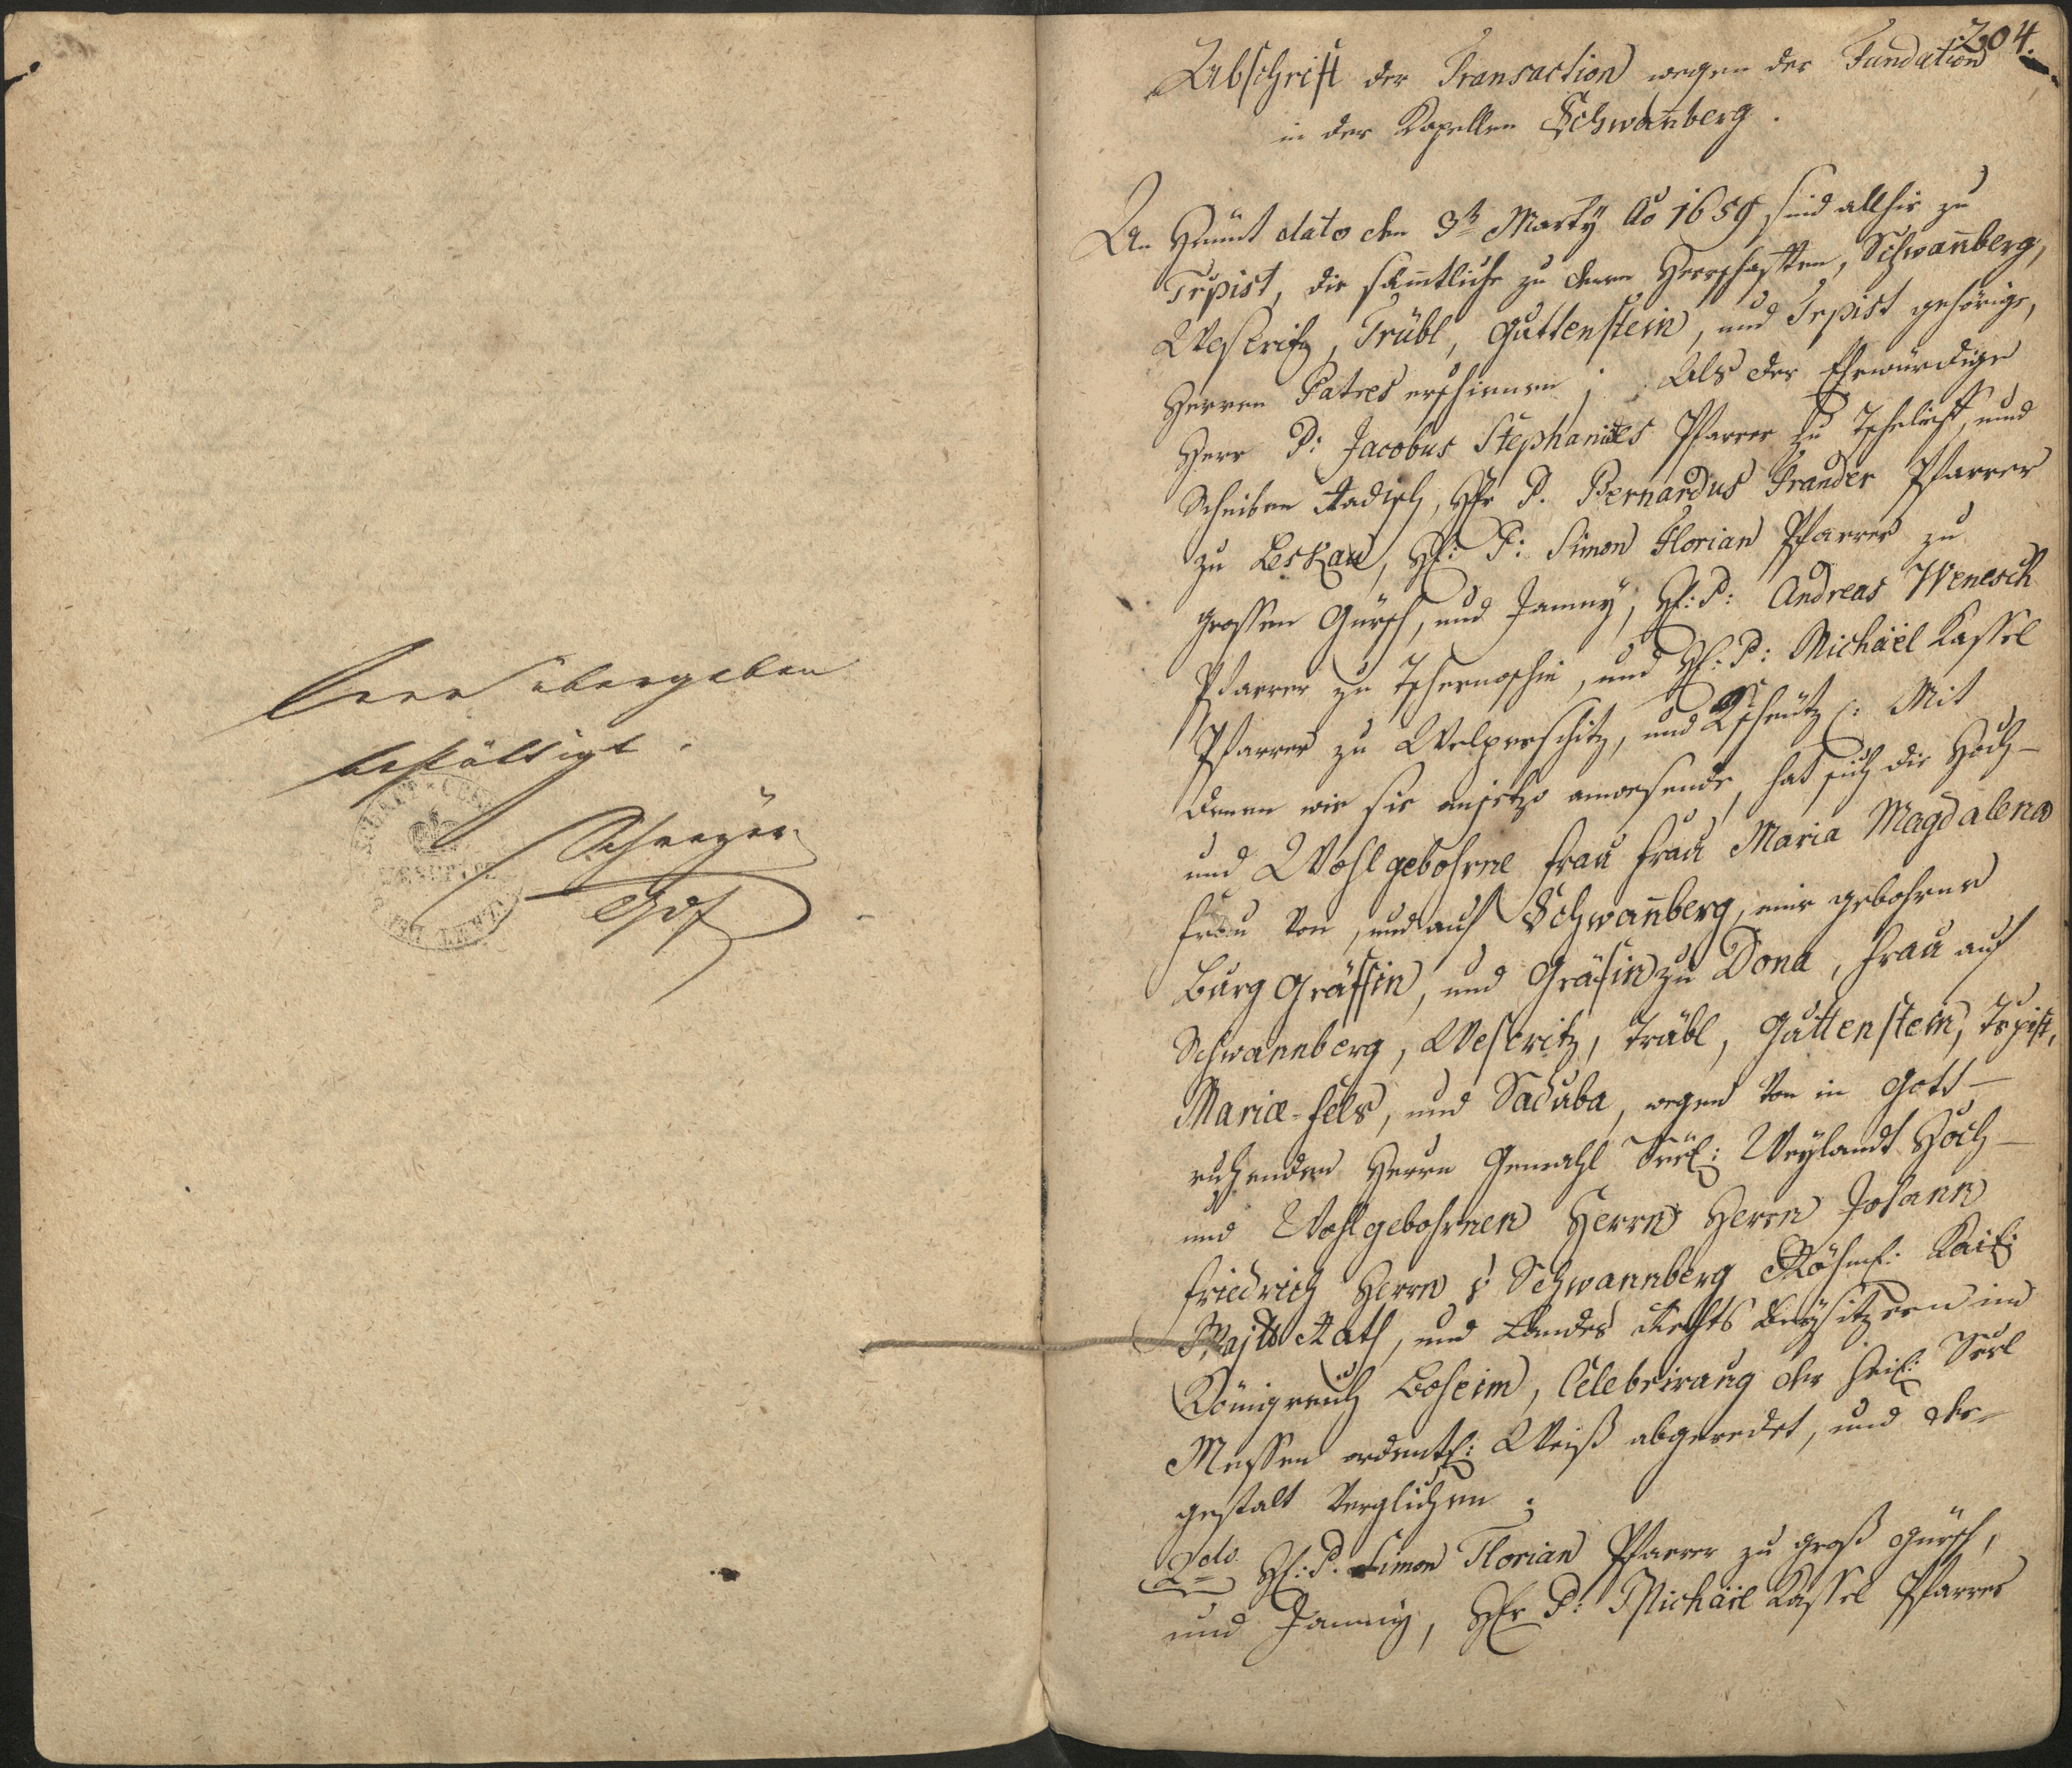 übergeben
bestättigt.
204.
Abschrift der Transaction wegen der Fundation
in der Kapellen Schwan̄berg.
An Heünt dato den 3t Marty Ao 1659 sind allhie zu
Trpist, die sam̄tliche zu denen Herrschafften, Schwan̄berg,
Weseritz, Trübl, Guttenstein, und Trpist gehörige,
Herren Patres erschienen; Als der Ehrwürdige
Herr P: Jacobus Stephanides Pfarrer zu Tschelief, und
Scheiben Radisch, Hr P. Bernardus Prander Pfarrer
zu Leskau, H: P: Simon Florian Pfarrer zu
grossen Gürsch, und Jamny, H: P: Andreas Wenesch
Pfarrer zu Tschernoschin, und H: P: Michäel Kassel
Pfarrer zu Welperschitz, und Kscheütz: Mit
denen wie sie anjetzo anwesende, hat sich die Hoch-
und Wohlgebohrne Frau Frau Maria Magdalena
Frau von, und auf Schwan̄berg, eine gebohrne
Burg Gräffin, und Gräfin zu Dona, Frau auf
Schwannberg, Weseritz, Träbl, Guttenstein, Trpist,
Mariæ-Fels, und Saduba, wegen von in Gott-
ruhenden Herrn Gemahl Seel: Weylandt Hoch-
und Wohlgebohrnen Herrn Herrn Johann
Friedrich Herrn v Schwannberg Röhml: Kail:
Majtt Rath, und Landes Rechts Beysitzern im
Königreich Boheim, Celebrirung der heil: Seel
Messen ordentl: Weiß abgeredet, und der-
gestalt verglichen;
2do H: P. Simon Florian Pfarrer zu groß Gürsch,
und Jamny, Hr P: Michäel Kassel Pfarrer